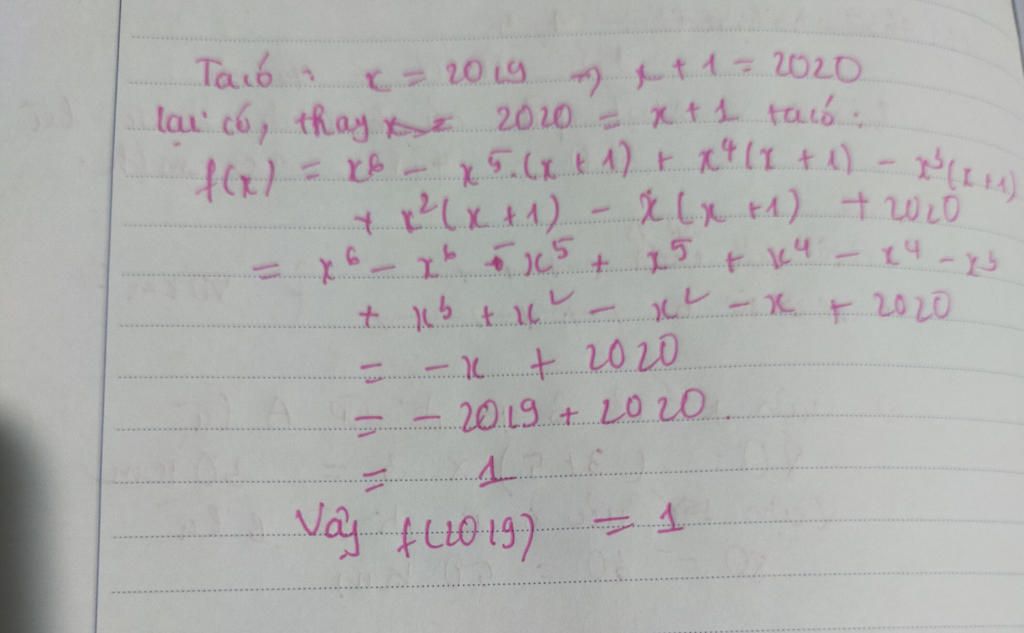 Ta có : x = 2019 => x + 1 = 2020
lại có, thay 2020 = x + 1 ta có :
f(x) = x⁶ - x⁵.(x + 1) + x⁴(x + 1) - x³(x + 1)
+ x²(x + 1) - x(x + 1) + 2020
= x⁶ - x⁶ - x⁵ + x⁵ + x⁴ - x⁴ - x³
+ x³ + x² - x² - x + 2020
= - x + 2020
= - 2019 + 2020.
= 1
Vậy f(2019) = 1